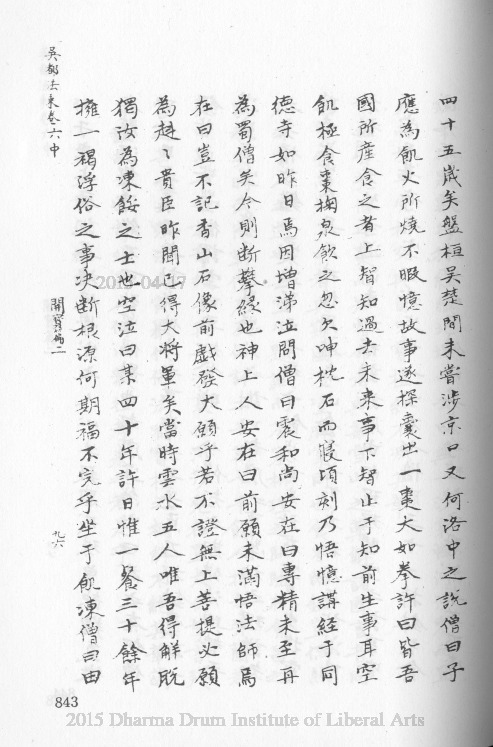 四十五歲矣盤桓吳楚間未嘗涉京口又何洛中之說僧曰子
應為飢火所燒不暇憶故事遂探囊出一棗大如拳許曰皆吾
國所產食之者上智知過去未來事下智止于知前生事耳空
飢極食棗掬泉飲之忽欠呻枕石而寢頃刻乃悟憶講經于同
德寺如昨日焉因增涕泣問僧曰震和尚安在曰專精未至再
為蜀僧矣今則斷攀緣也神上人安在曰前願未滿悟法師焉
在曰豈不記香山石像前戲發大願乎若不證無上菩提必願
為赳〻貴臣昨聞已得大將軍矣當時雲水五人唯吾得解脫
獨汝為凍餒之士也空泣曰某四十年許日惟一餐三十餘年
擁一褐浮俗之事決斷根源何期福不完乎坐于飢凍僧曰由
吳都法乘卷六中
開賢篇二
九六
843
2015-04-17
2015 Dharma Drum Institute of Liberal Arts